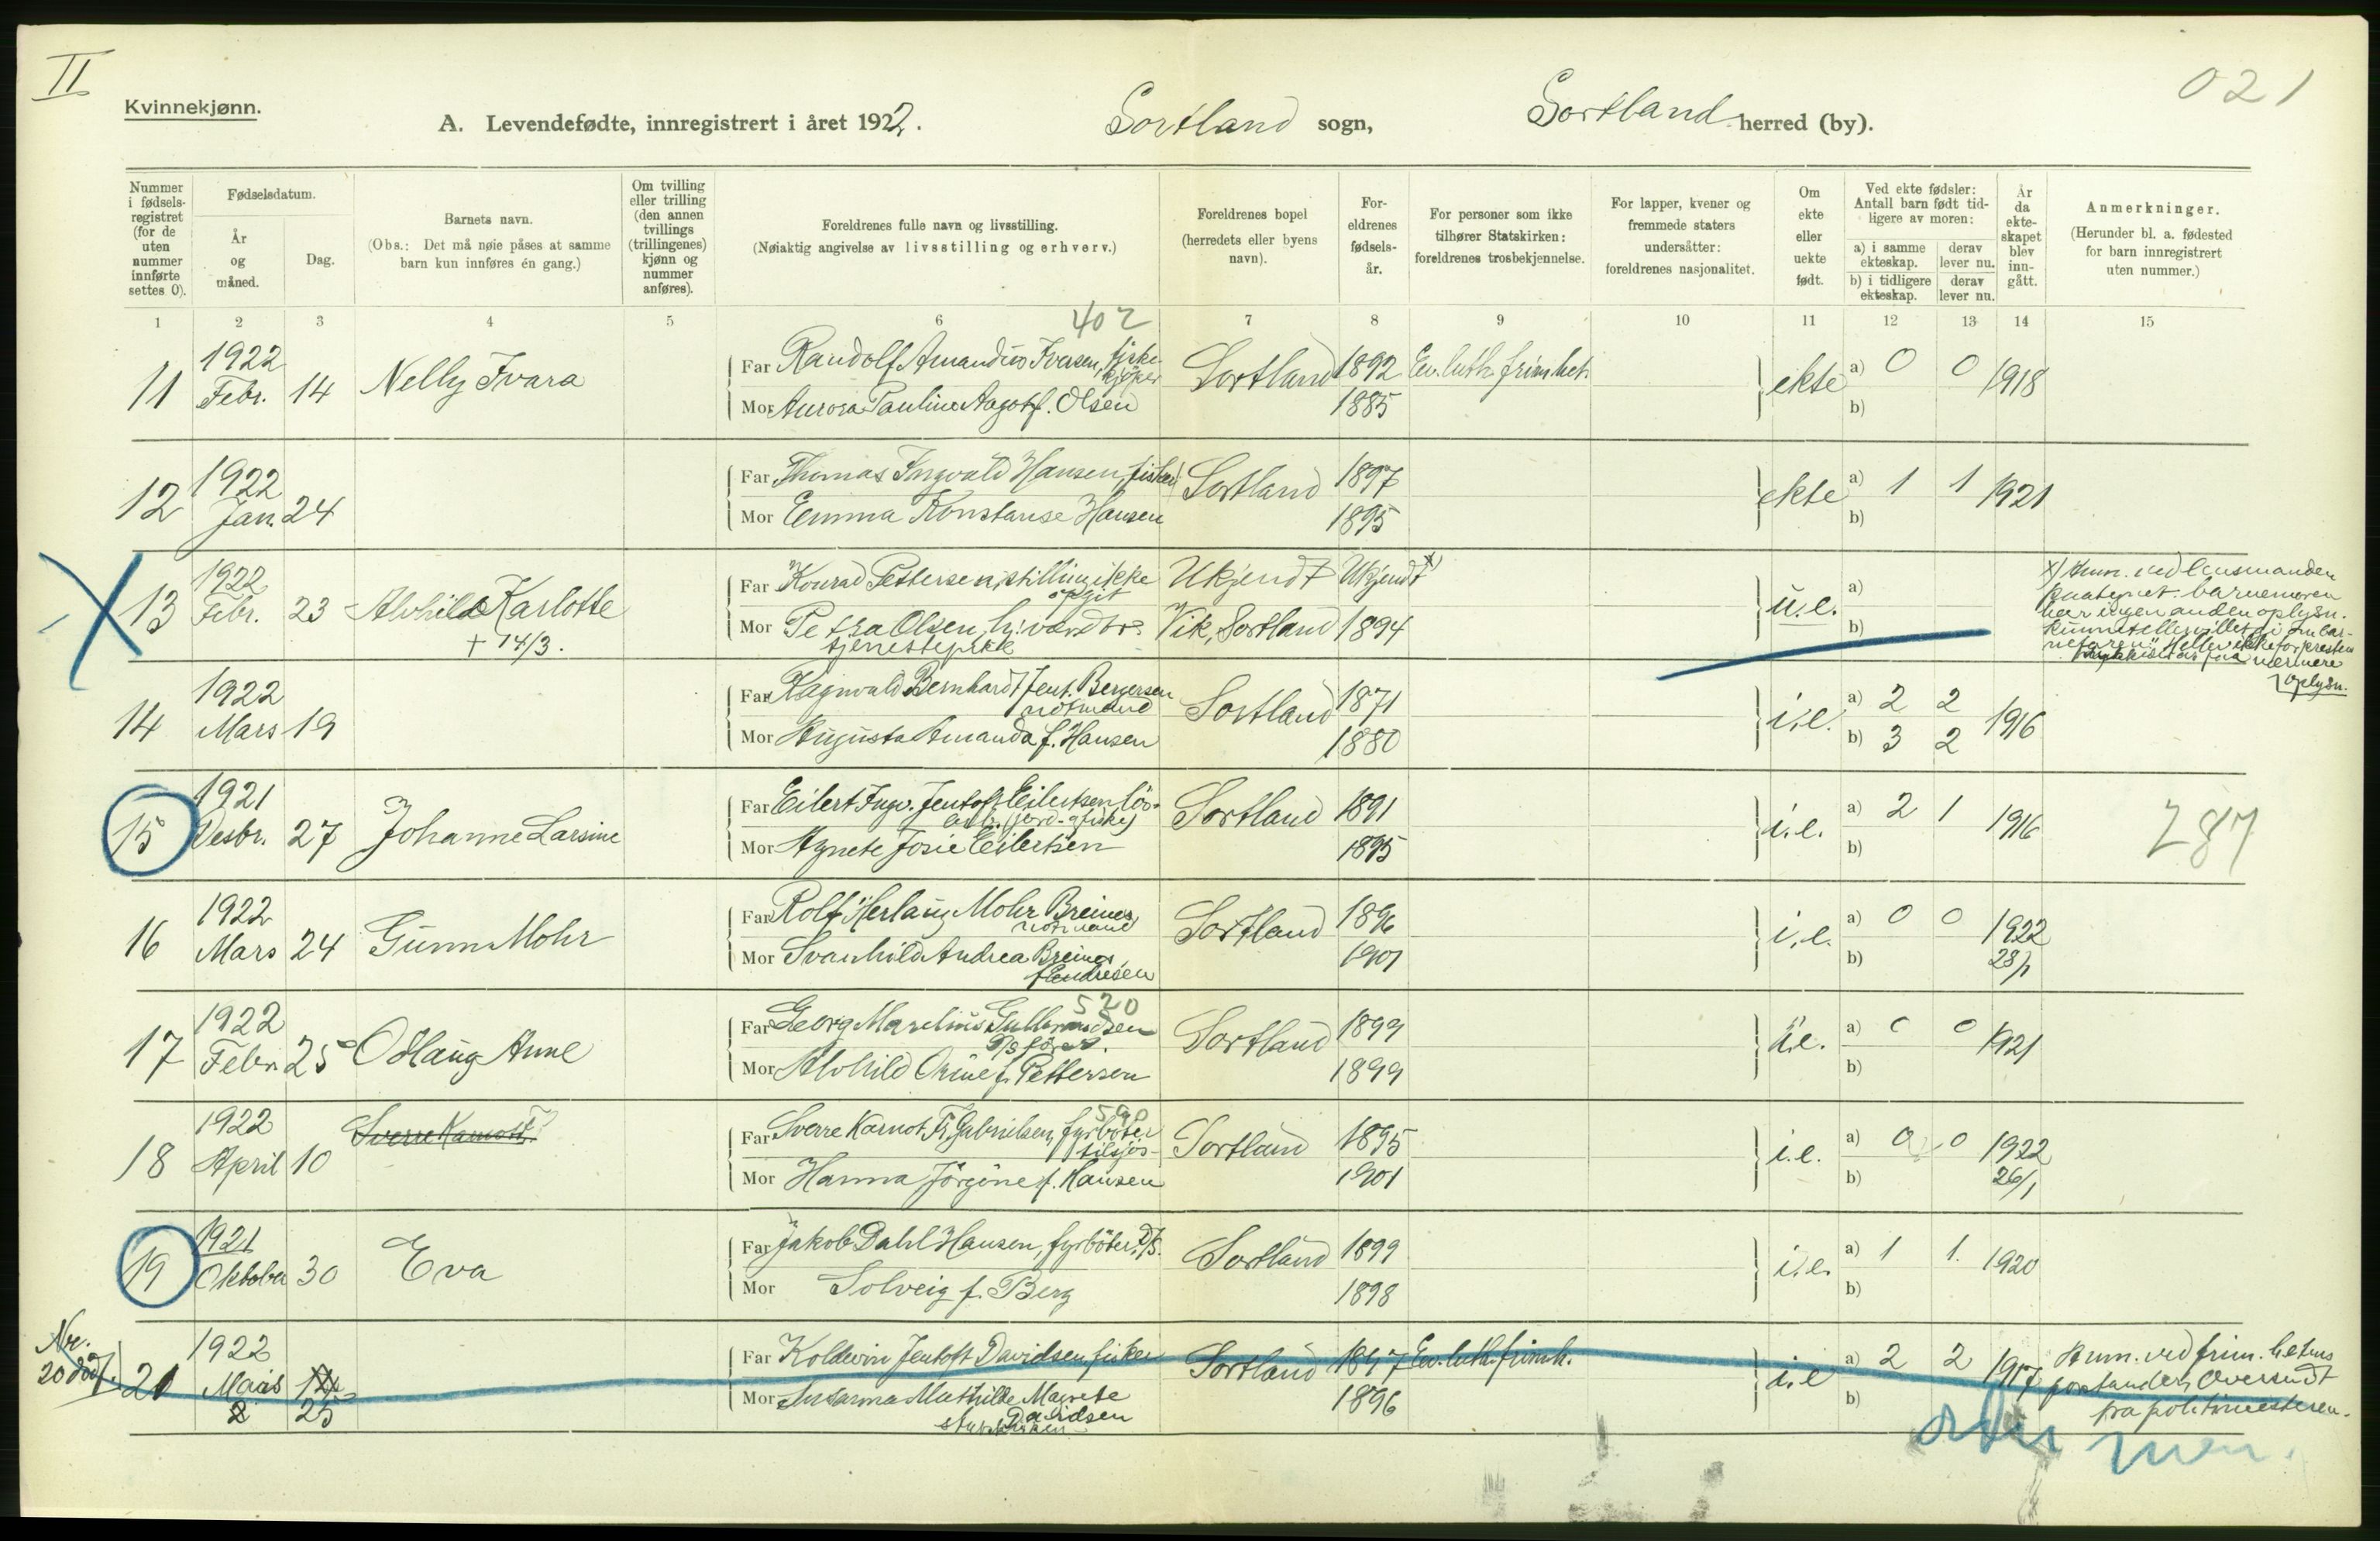 II
Kvinnekjønn.
021
A. Levendefødte, innregistrert i året 1922.
Sortland sogn,
Sortland herred (by).
Nummer i fødsels-registret (for de uten nummer innførte settes 0).
Fødselsdatum.
År og måned.
Dag.
Barnets navn.
(Obs.: Det må nøie påses at samme barn kun innføres én gang.)
Om tvilling eller trilling (den annen tvillings (trillingenes) kjønn og nummer anføres).
Foreldrenes fulle navn og livsstilling.
(Nøiaktig angivelse av livsstilling og erhverv.)
Foreldrenes bopel (herredets eller byens navn).
For-eldrenes fødsels-år.
For personer som ikke tilhører Statskirken: foreldrenes trosbekjennelse.
For lapper, kvener og fremmede staters undersåtter: foreldrenes nasjonalitet.
Om ekte eller uekte født.
Ved ekte fødsler: Antall barn født tid-ligere av moren:
a) i samme ekteskap.
derav lever nu.
b) i tidligere ekteskap.
derav lever nu.
År da ekte-skapet blev inn-gått.
Anmerkninger.
(Herunder bl. a. fødested for barn innregistrert uten nummer.)
1 2 3 4 5 6 7 8 9 10 11 12 13 14 15
402
11 1922 Febr. 14 Nelly Ivara
Far Randolf Amandus Iversen, fiske-kjøper Sortland 1892 Ev. luth. frimenh. ekte a) 0 0 1918
Mor Aurora Pauline Aagot f. Olsen 1885 b)
12 1922 Jan. 24
Far Thomas Ingvald Hansen, fisker Sortland 1897 ekte a) 1 1 1921
Mor Emma Konstanse Hansen 1895 b)
13 1922 Febr. 23 Alvhild Karlotte
+ 14/3.
Far Konrad Pettersen, stilling ikke opgit Ukjendt Ukjendt x) u.e. a)
Mor Petra Olsen, tjenestepike Vik, Sortland 1894 b)
x) Anm. ved lensmanden
barnemoren
har ingen anden oplysn.
kunnet eller villet gi om bar-
nefaren. Heller ikke for presten
nærmere
oplysn.
14 1922 Mars 19
Far Ragnvald Bernhard Jent. Bergersen notmand Sortland 1871 i.e. a) 2 2 1916
Mor Augusta Amanda f. Hansen 1880 b) 3 2
15 1921 Desbr. 27 Johanne Larsine
Far Eilert Ingv. Jentoft Eilertsen løs-arb. (jord- og fiske) Sortland 1891 i.e. a) 2 1 1916
Mor Agnete Josie Eilertsen 1895 b)
287
16 1922 Mars 24 Gunn Mohr
Far Rolf Herlaug Mohr Breines notmand Sortland 1896 i.e. a) 0 0 1922
Mor Svanhild Andrea Breines f. Endresen 1901 b) 28/1
520
17 1922 Febr. 25 Odlaug Anne
Far Georg Marelius Gulbrandsen Sortland 1899 i.e. a) 0 0 1921
Mor Alvhild Orine f. Pettersen 1899 b)
590
18 1922 April 10 Sverre Karnot F.
Far Sverre Karnot Fr. Gabrielsen, fyrbøter tilsjøs Sortland 1895 i.e. a) 0 0 1922
Mor Hanna Jørgine f. Hansen 1901 b) 26/1
19 1921 Oktober 30 Eva
Far Jakob Dahl Hansen, fyrbøter, D/S. Sortland 1899 i.e. a) 1 1 1920
Mor Solveig f. Berg 1898 b)
Nr.
20 død.
21 1922 Mars 2 25
Far Koldevin Jentoft Davidsen, fisker Sortland 1897 Ev. luth. frimh. i.e. a) 2 2 1917
Mor Susanna Mathilde Magrete Davidsen 1896 b)
Anm. ved frim.hetens
forstander. Oversendt
fra politimesteren.